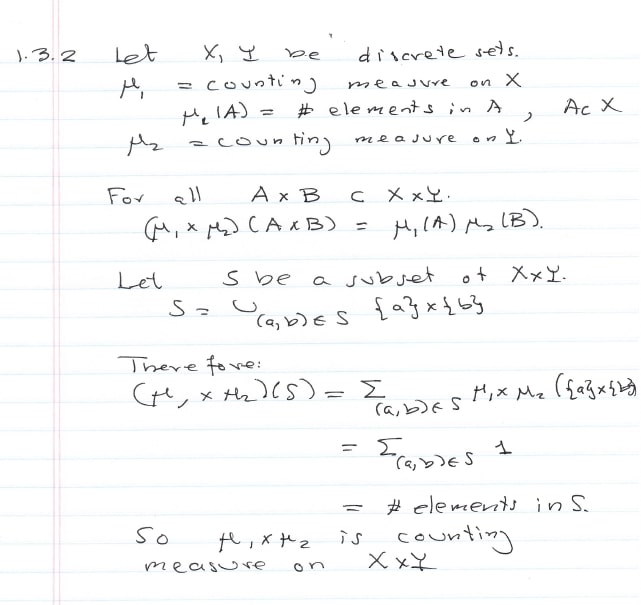 1.3.2 Let X, Y be discrete sets.
μ₁ = counting measure on X
μ₁(A) = # elements in A, A ⊂ X
μ₂ = counting measure on Y.
For all A × B ⊂ X × Y.
(μ₁ × μ₂)(A × B) = μ₁(A) μ₂(B).
Let S be a subset of X × Y.
S = ∪_{(a,b)∈S} {a} × {b}
Therefore:
(μ₁ × μ₂)(S) = Σ_{(a,b)∈S} μ₁ × μ₂ ({a} × {b})
= Σ_{(a,b)∈S} 1
= # elements in S.
So μ₁ × μ₂ is counting
measure on X × Y